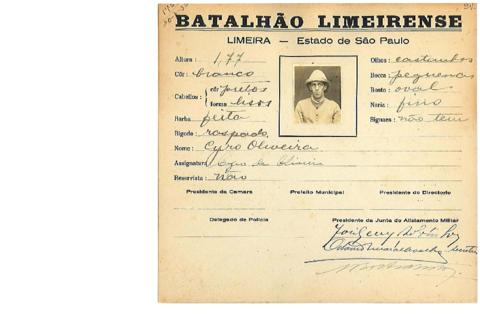 BATALHÃO LIMEIRENSE
LIMEIRA — Estado de São Paulo
Altura: 1,77
Olhos: castanhos
Côr: branco
Bocca: pequena
Cabellos: côr pretos
forma lisos
Rosto: oval
Nariz: fino
Barba feita
Signaes: não tem
Bigode: raspado
Nome: Cyro Oliveira
Assignatura Cyro de Oliveira
Reservista: Não
Presidente da Camara
Prefeito Municipal
Presidente do Directorio
Delegado de Policia
Presidente da Junta de Alistamento Militar